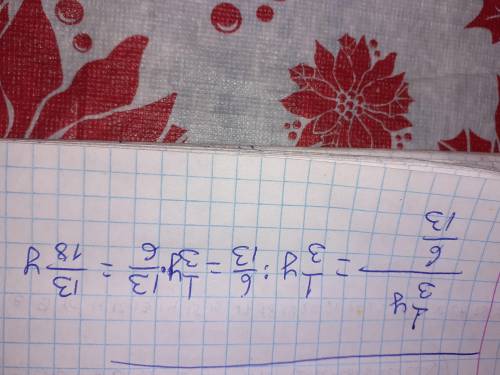 \frac{\frac{1}{3}y}{\frac{6}{13}} = \frac{1}{3}y : \frac{6}{13} = \frac{1}{3}y \cdot \frac{13}{6} = \frac{13}{18}y